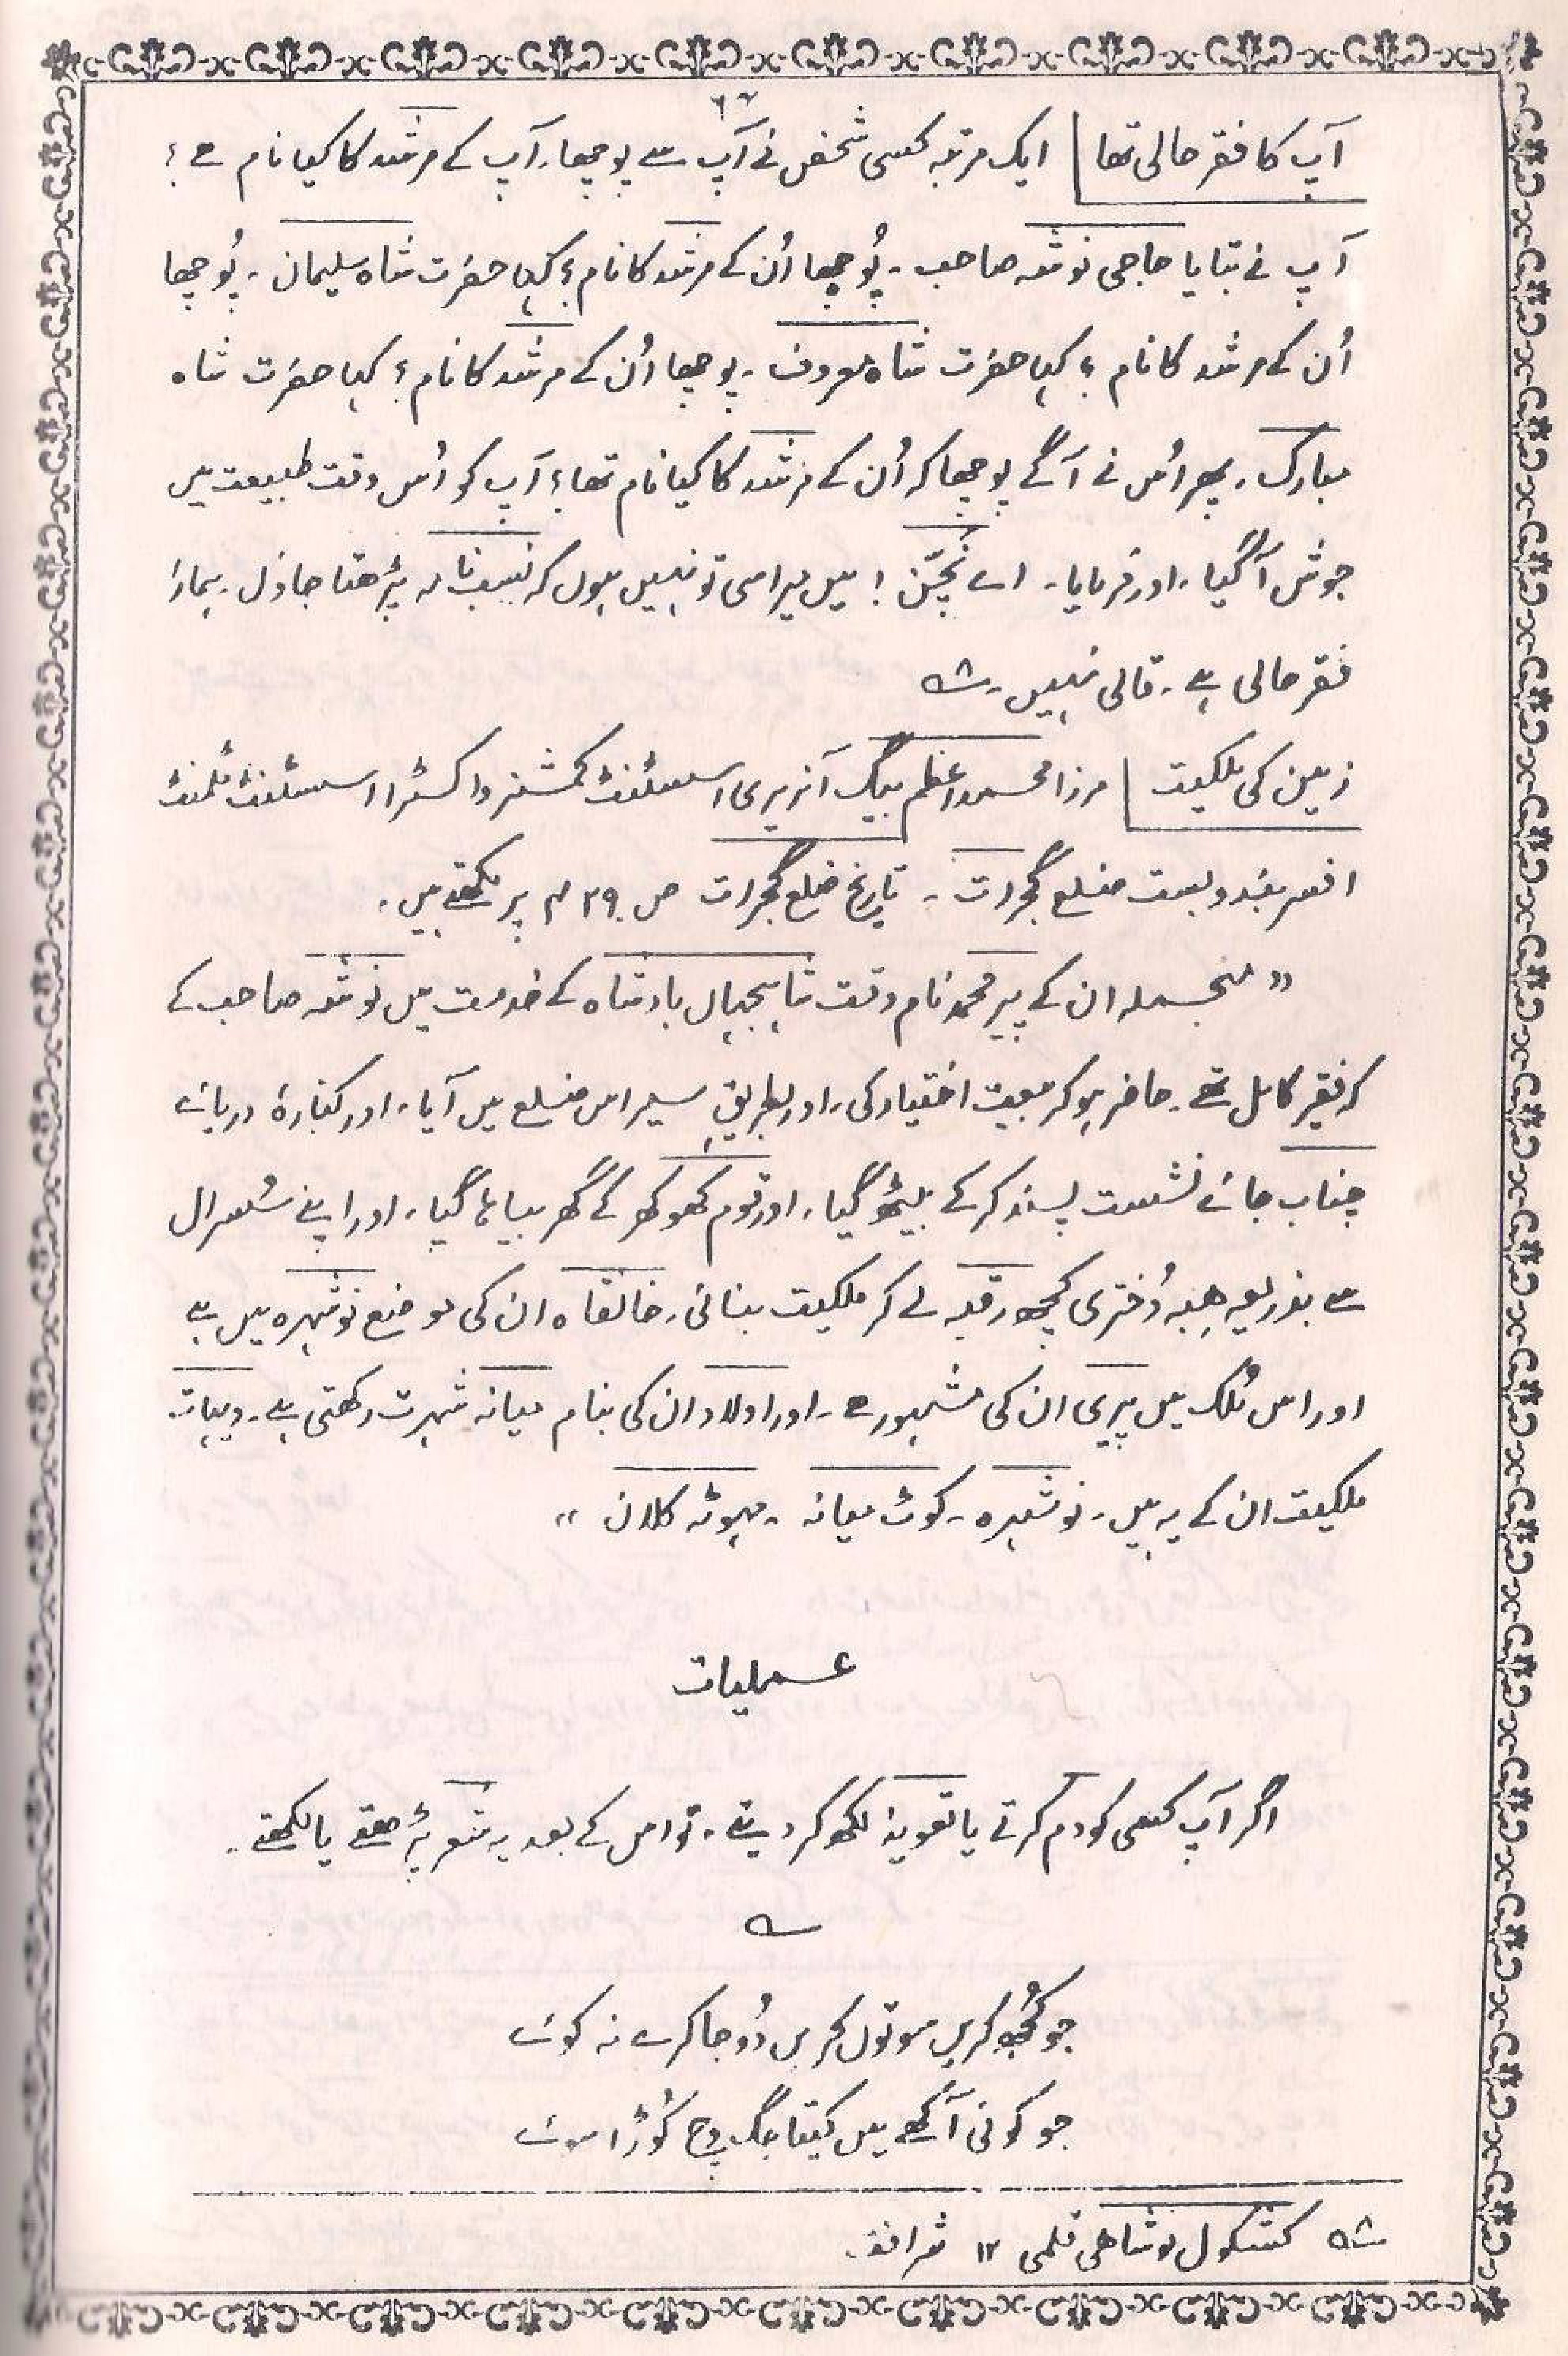 ۶۷
آپ کا فقر حالی تھا | ایک مرتبہ کسی شخص نے آپ سے پوچھا۔ آپ کے مرشد کا کیا نام ہے؟
آپ نے بتایا حاجی نوشہ صاحب۔ پُوچھا اُن کے مرشد کا نام؟ کہا حضرت شاہ سلیمان۔ پُوچھا
اُن کے مرشد کا نام؟ کہا حضرت شاہ معروف۔ پوچھا اُن کے مرشد کا نام؟ کہا حضرت شاہ
مبارک۔ پھر اُس نے آگے پوچھا کہ اُن کے مرشد کا کیا نام تھا؟ آپ کو اُس وقت طبیعت میں
جوش آگیا۔ اور فرمایا۔ اے بچّن! میں میراسی تو نہیں ہوں کہ نسب نامہ پڑھتا جاؤں۔ ہمارا
فقر حالی ہے۔ قالی نہیں۔ ۸ـہ
زمین کی ملکیت | مرزا محمد اعظم بیگ آنریری اسسٹنٹ کمشنر و اکسٹرا اسسٹنٹ ٹلمنٹ
افسر بندوبست ضلع گجرات۔ تاریخ ضلع گجرات ص ۴۹۰ پر لکھتے ہیں۔
"منجملہ ان کے پیر محمد نام وقت شاہجہاں بادشاہ کے خدمت میں نوشہ صاحب کے
کہ فقیر کامل تھے۔ حاضر ہو کر بیعت اختیار کی۔ اور بطریق سیر اس ضلع میں آیا۔ اور کنارۂ دریائے
چناب جائے نشست پسند کر کے بیٹھ گیا۔ اور قوم کھوکھر کے گھر بیاہا گیا۔ اور اپنے سُسرال
سے بذریعہ ھبہ دُختری کچھ رقبہ لے کر ملکیت بنائی۔ خانقاہ ان کی موضع نوشہرہ میں ہے
اور اس مُلک میں پیری ان کی مشہور ہے۔ اور اولاد ان کی بنام میانہ شہرت رکھتی ہے۔ دیہات
ملکیت ان کے یہ ہیں۔ نوشہرہ۔ کوٹ میانہ۔ مہوٹہ کلاں"
عملیات
اگر آپ کسی کو دم کرتے یا تعویذ لکھ کر دیتے۔ تو اس کے بعد یہ شعر پڑھتے یا لکھتے۔
؎
جو کُجھ کریں سو توں کریں دُوجا کرے نہ کوئے
جو کوئی آکھے میں کیتا جگ وچ کُوڑا سوئے
۸ـہ کشکول نوشاھی قلمی ۱۲ شرافت